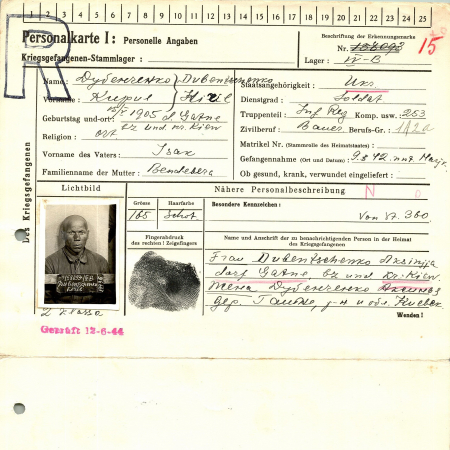 1 2 3 4 5 6 7 8 9 10 11 12 13 14 15 16 17 18 19 20 21 22 23 24 25
R
Personalkarte I: Personelle Angaben
Kriegsgefangenen-Stammlager:
Beschriftung der Erkennungsmarke
Nr.
15
Lager: IV-B
Des Kriegsgefangenen
Name: Дубенченко Dubentschenko
Vorname: Кирил Kiril
Geburtstag und -ort: 1905 d. Gatne
bz und kr. Kiew
Religion: ort
Vorname des Vaters: Isak
Familienname der Mutter:
Staatsangehörigkeit: Ukr
Dienstgrad: Soldat
Truppenteil: Inf Reg Komp. usw. 253
Zivilberuf: Bauer Berufs-Gr.:
Matrikel Nr. (Stammrolle des Heimatstaates):
Gefangennahme (Ort und Datum): 9.8.42
Ob gesund, krank, verwundet eingeliefert:
Lichtbild
Nähere Personalbeschreibung
N
Grösse
165
Haarfarbe
Besondere Kennzeichen:
Von St. 360
Fingerabdruck
des rechten Zeigefingers
Name und Anschrift der zu benachrichtigenden Person in der Heimat
des Kriegsgefangenen
Frau Dubentschenko Aksinija
dorf Gatne, bz und kr. Kiew.
Жена Дубенченко
дер. Гатне, р-н и обл. Киев
Wenden!
Geprüft 12-6-44